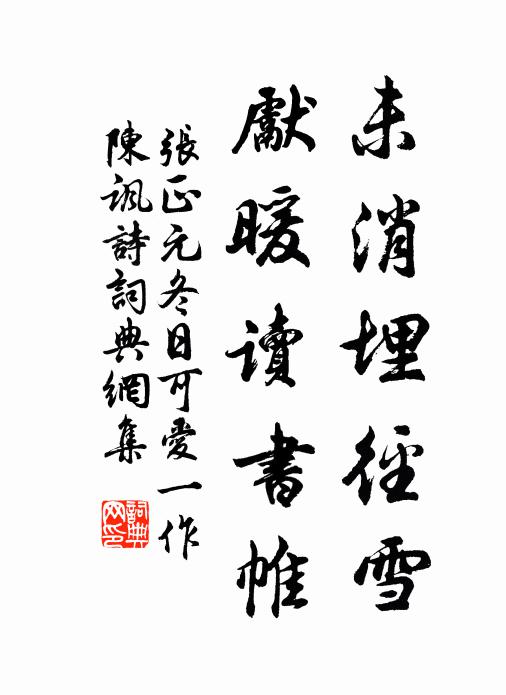 未消埋徑雪
獻暖讀書帷
張正元冬日可愛一作
陳諷詩詞典網集
詞典
网印